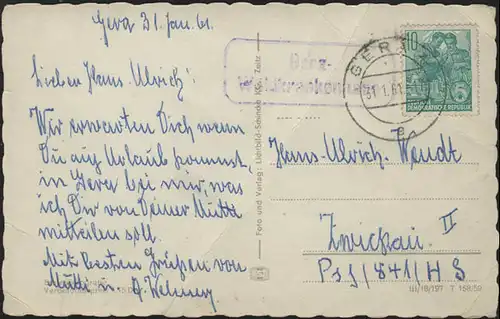 Gera 31. Jan. 61.
Lieber Hans Ulrich!
Wir erwarten Dich wenn
Du auf Urlaub kommst,
in Gera bei mir, was
ich Dir von Deiner Mutti
mitteilen soll.
Mit besten Grüßen von
Mutti u.
Gera-
Waldkrankenhaus
GERA
31.1.61
10
DEUTSCHE DEMOKRATISCHE REPUBLIK
Foto und Verlag: Lichtbild-Schincke KG., Zeitz
Hans-Ulrich Wendt
Zwickau II
III/18/197 T 168/59